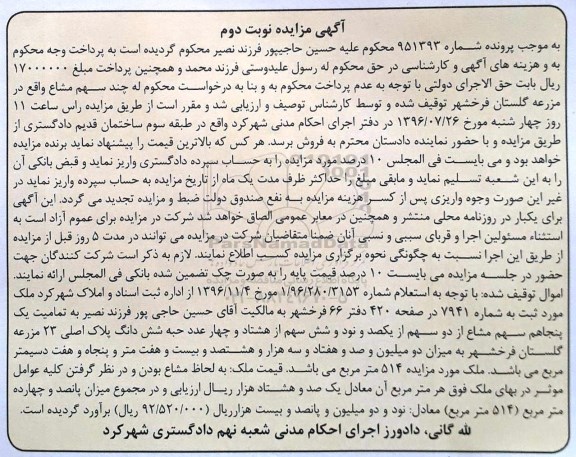 آگهی مزایده نوبت دوم
به موجب پرونده شماره ۹۵۱۳۹۳ محکوم علیه حسین حاجیپور فرزند نصیر محکوم گردیده است به پرداخت وجه محکوم
به و هزینه های آگهی و کارشناسی در حق محکوم له رسول علیدوستی فرزند محمد و همچنین پرداخت مبلغ ۱۷۰۰۰۰۰۰
ریال بابت حق الاجرای دولتی با توجه به عدم پرداخت محکوم به و بنا به درخواست محکوم له چند سهم مشاع واقع در
مزرعه گلستان فرخشهر توقیف شده و توسط کارشناس توصیف و ارزیابی شد و مقرر است از طریق مزایده راس ساعت ۱۱
روز چهار شنبه مورخ ۱۳۹۶/۰۷/۲۶ در دفتر اجرای احکام مدنی شهرکرد واقع در طبقه سوم ساختمان قدیم دادگستری از
طریق مزایده و با حضور نماینده دادستان محترم به فروش برسد. هر کس که بالاترین قیمت را پیشنهاد نماید برنده مزایده
خواهد بود و می بایست فی المجلس ۱۰ درصد مورد مزایده را به حساب سپرده دادگستری واریز نماید و قبض بانکی آن
را به این شعبه تسلیم نماید و مابقی مبلغ را حداکثر ظرف مدت یک ماه از تاریخ مزایده به حساب سپرده واریز نماید در
غیر این صورت وجوه واریزی پس از کسر هزینه مزایده به نفع صندوق دولت ضبط و مزایده تجدید می گردد. این آگهی
برای یکبار در روزنامه محلی منتشر و همچنین در معابر عمومی الصاق خواهد شد شرکت در مزایده برای عموم آزاد است به
استثناء مسئولین اجرا و قربای سببی و نسبی آنان ضمنا متقاضیان شرکت در مزایده می توانند در مدت ۵ روز قبل از مزایده
از طریق این اجرا نسبت به چگونگی نحوه برگزاری مزایده کسب اطلاع نمایند. لازم به ذکر است شرکت کنندگان جهت
حضور در جلسه مزایده می بایست ۱۰ درصد قیمت پایه را به صورت چک تضمین شده بانکی فی المجلس ارائه نمایند.
اموال توقیف شده: با توجه به استعلام شماره ۱۹۶/۲۰/۳۱۵۳ مورخ ۱۳۹۶/۱/۴ از اداره ثبت اسناد و املاک شهرکرد ملک
مورد ثبت به شماره ۷۹۴۱ در صفحه ۴۲۰ دفتر ۶۶ فرخشهر به مالکیت آقای حسین حاجی پور فرزند نصیر به تمامیت یک
پنجاهم سهم مشاع از دو سهم از یکصد و نود و شش سهم از هشتاد و چهار عدد حبه شش دانگ پلاک اصلی ۲۳ مزرعه
گلستان فرخشهر به میزان دو میلیون و صد و هفتاد و سه هزار و هشتصد و بیست و هفت متر و پنجاه و هفت دسیمتر
مربع می باشد. ملک مورد مزایده ۵۱۴ متر مربع می باشد. قیمت ملک: به لحاظ مشاع بودن و در نظر گرفتن کلیه عوامل
موثر در بهای ملک فوق هر متر مربع آن معادل یک صد و هشتاد هزار ریال ارزیابی و در مجموع میزان پانصد و چهارده
متر مربع (۵۱۴ متر مربع) معادل: نود و دو میلیون و پانصد و بیست هزارریال (۹۲/۵۲۰/۰۰۰ ریال) برآورد گردیده است.
لله گانی، دادورز اجرای احکام مدنی شعبه نهم دادگستری شهرکرد